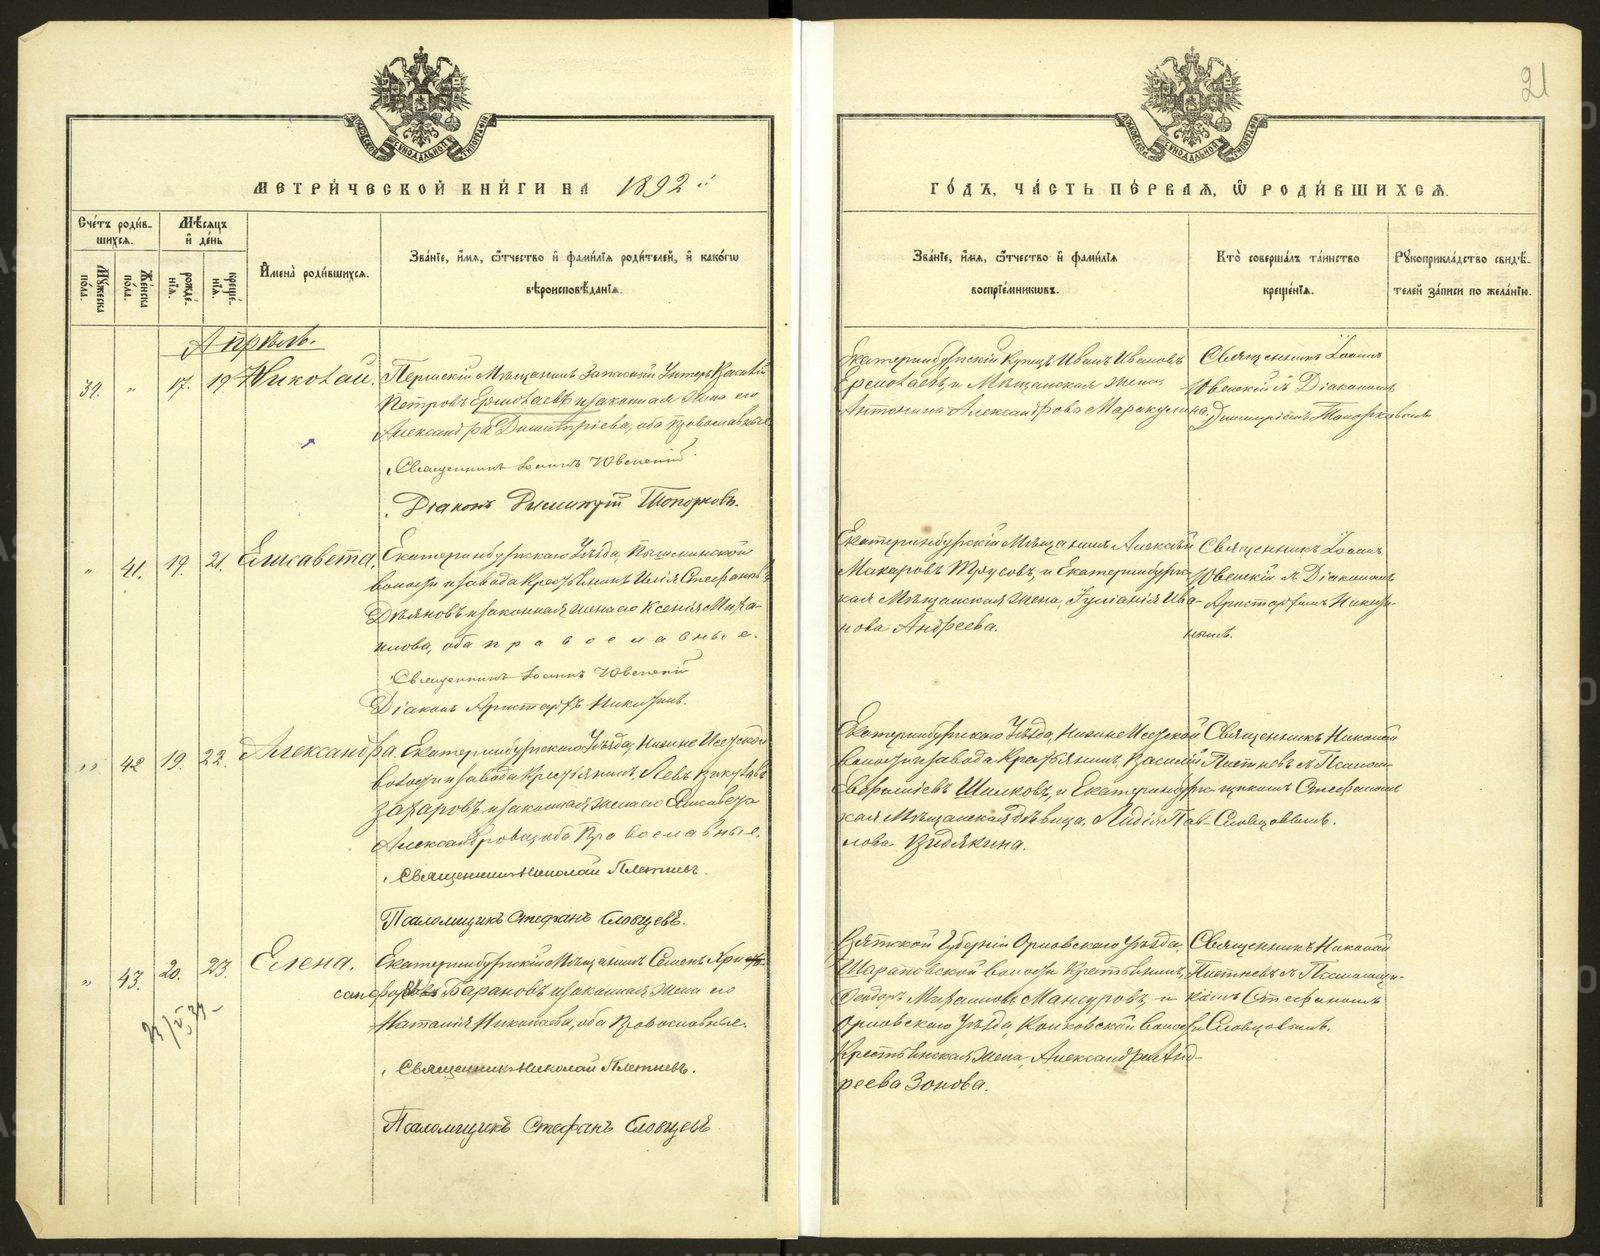 21
МЕТРИЧЕСКОЙ КНИГИ НА 1892 й
ГОДЪ, ЧАСТЬ ПЕРВАЯ, Ѡ РОДИВШИХСЯ.
Счетъ родив-
шихся.
Мѣсяцъ
и день
Мужеска
пола.
Женска
пола.
рожде-
нія.
креще-
нія.
Имена родившихся.
Званіе, имя, ѿчество и фамилія родителей, и какогѡ
вѣроисповѣданія.
Званіе, имя, ѿчество и фамилія
воспріемникѡвъ.
Кто совершалъ таинство
крещенія.
Рукоприкладство свидѣ-
телей записи по желанію.
Апрѣль.
39. " 17. 19. Николай.
Пермскій Мѣщанинъ Запасный Унтеръ Василій
Петровъ Ермолаевъ и законная жена его
Александра Димитріева, оба православные
Священникъ Іоаннъ Ювенскій
Діаконъ Димитрій Топорковъ.
Екатеринбургскій Купецъ Иванъ Ивановъ
Ермолаевъ, и Мѣщанская жена,
Антонина Александрова Маракулина.
Священникъ Іоаннъ
Ювенскій съ Діакономъ
Димитріемъ Топорковымъ
" 41. 19. 21. Елисавета.
Екатеринбургскаго Уѣзда, Пышминской
волости и завода Крестьянинъ Илія Стефановъ
Дѣяновъ и законная жена его Ксенія Миха-
илова, оба православные.
Священникъ Іоаннъ Ювенскій
Діаконъ Аристархъ Никитинъ.
Екатеринбургскій Мѣщанинъ Алексѣй
Макаровъ Трусовъ, и Екатеринбургс-
кая Мѣщанская жена, Іуліанія Ива-
нова Андреева.
Священникъ Іоаннъ
Ювенскій съ Діакономъ
Аристархомъ Никити-
нымъ.
" 42 19. 22. Александра.
Екатеринбургскаго Уѣзда, Нижне Исетской
волости и завода Крестьянинъ, Левъ Викуловъ
Захаровъ и законная жена его Елисавета
Александрова, оба Православные.
Священникъ Николай Плетневъ.
Псаломщикъ Стефанъ Словцевъ.
Екатеринбургскаго Уѣзда, Нижне Исетской
волости и завода Крестьянинъ, Василій
Евфиміевъ Шилковъ, и Екатеринбургс-
кая Мѣщанская дѣвица, Лидія Пав-
лова Видякина.
Священникъ Николай
Плетневъ съ Псалом-
щикомъ Стефаномъ
Словцовымъ.
" 43. 20. 23. Елена.
Екатеринбургскій Мѣщанинъ Семенъ Хри-
санфовъ Барановъ и законная жена его
Наталія Николаева, оба Православные.
Священникъ Николай Плетневъ.
Псаломщикъ Стефанъ Словцевъ.
Вятской Губерніи Орловскаго Уѣзда,
Шараповской волости Крестьянинъ,
Ѳеодоръ Мансуровъ, и
Орловскаго Уѣзда, Колковской волости
Крестьянская жена, Александра Анд-
реева Зонова.
Священникъ Николай
Плетневъ съ Псаломщи-
комъ Стефаномъ
Словцовымъ.